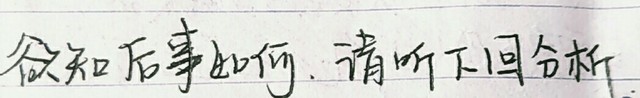 欲知后事如何.请听下回分析.